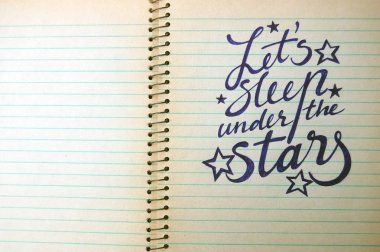 Let's
sleep
under the
stars